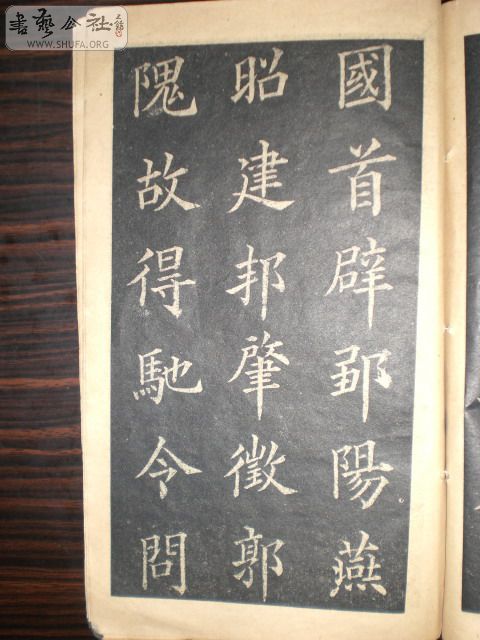 書藝公社
WWW.SHUFA.ORG
國首辟鄒陽燕
昭建邦肇徵郭
隗故得馳令問